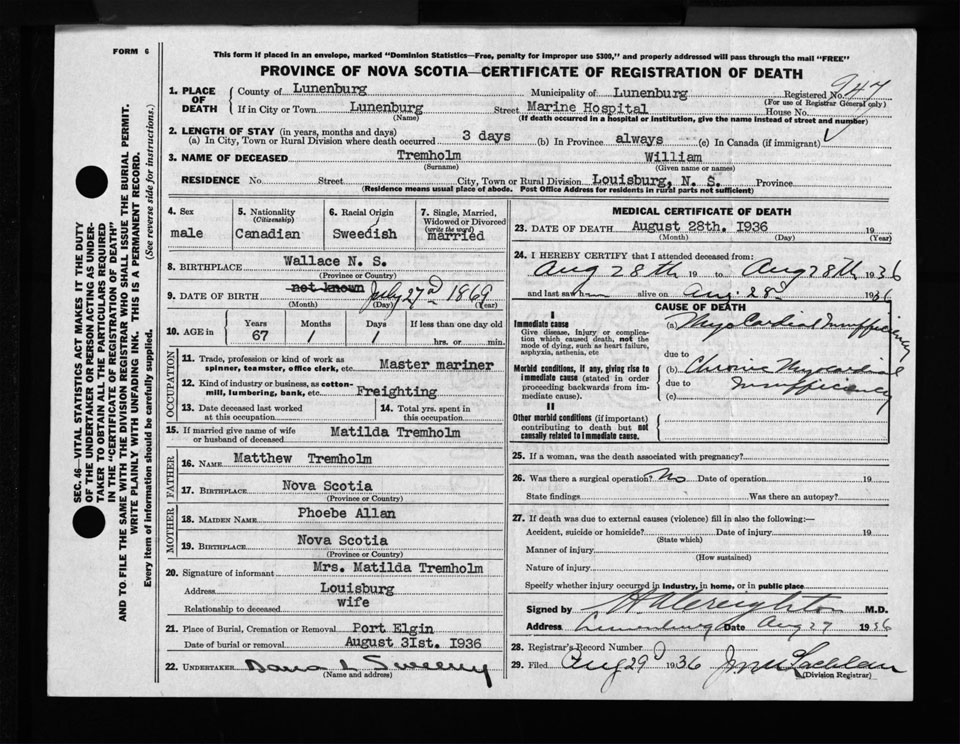 FORM 6
This form if placed in an envelope, marked "Dominion Statistics—Free, penalty for improper use $300," and properly addressed will pass through the mail "FREE"
PROVINCE OF NOVA SCOTIA—CERTIFICATE OF REGISTRATION OF DEATH
SEC. 46—VITAL STATISTICS ACT MAKES IT THE DUTY
OF THE UNDERTAKER OR PERSON ACTING AS UNDER-
TAKER TO OBTAIN ALL THE PARTICULARS REQUIRED
IN THE "CERTIFICATE OF REGISTRATION OF DEATH"
AND TO FILE THE SAME WITH THE DIVISION REGISTRAR WHO SHALL ISSUE THE BURIAL PERMIT.
WRITE PLAINLY WITH UNFADING INK. THIS IS A PERMANENT RECORD.
Every item of information should be carefully supplied. (See reverse side for instructions.)
1. PLACE OF DEATH
County of Lunenburg Municipality of Lunenburg Registered No. 947
(For use of Registrar General only)
If in City or Town Lunenburg Street Marine Hospital House No.
(Name) (If death occurred in a hospital or institution, give the name instead of street and number)
2. LENGTH OF STAY (in years, months and days)
(a) In City, Town or Rural Division where death occurred 3 days (b) In Province always (c) In Canada (if immigrant)
3. NAME OF DECEASED Tremholm William
(Surname) (Given name or names)
RESIDENCE No. Street City, Town or Rural Division Louisburg, N. S. Province
(Residence means usual place of abode. Post Office Address for residents in rural parts not sufficient)
4. Sex
male
5. Nationality
(Citizenship)
Canadian
6. Racial Origin
Swedish
7. Single, Married,
Widowed or Divorced
(write the word)
married
8. BIRTHPLACE Wallace N. S.
(Province or Country)
9. DATE OF BIRTH not known July 27 1869
(Month) (Day) (Year)
10. AGE in
Years Months Days If less than one day old
67 1 1 hrs. or min.
OCCUPATION
11. Trade, profession or kind of work as
spinner, teamster, office clerk, etc. Master mariner
12. Kind of industry or business, as cotton-
mill, lumbering, bank, etc. Freighting
13. Date deceased last worked
at this occupation
14. Total yrs. spent in
this occupation
15. If married give name of wife
or husband of deceased Matilda Tremholm
FATHER
16. NAME Matthew Tremholm
17. BIRTHPLACE Nova Scotia
(Province or Country)
MOTHER
18. MAIDEN NAME Phoebe Allan
19. BIRTHPLACE Nova Scotia
(Province or Country)
20. Signature of informant Mrs. Matilda Tremholm
Address Louisburg
Relationship to deceased wife
21. Place of Burial, Cremation or Removal Port Elgin
Date of burial or removal August 31st. 1936
22. UNDERTAKER Dana L Sweeny
(Name and address)
MEDICAL CERTIFICATE OF DEATH
23. DATE OF DEATH August 28th. 1936 19
(Month) (Day) (Year)
24. I HEREBY CERTIFY that I attended deceased from:
Aug 28th 19 to Aug 28th 1936
and last saw h alive on Aug. 28 1936
CAUSE OF DEATH
I
Immediate cause
Give disease, injury or complica-
tion which caused death, not the
mode of dying, such as heart failure,
asphyxia, asthenia, etc
(a) Myocardial Insufficiency
due to
Morbid conditions, if any, giving rise to
immediate cause (stated in order
proceeding backwards from im-
mediate cause).
(b) Chronic Myocardial
due to Insufficiency
(c)
II
Other morbid conditions (if important)
contributing to death but not
causally related to immediate cause.
25. If a woman, was the death associated with pregnancy?
26. Was there a surgical operation? No Date of operation 19
State findings Was there an autopsy?
27. If death was due to external causes (violence) fill in also the following:—
Accident, suicide or homicide? Date of injury 19
(State which)
Manner of injury
(How sustained)
Nature of injury
Specify whether injury occurred in industry, in home, or in public place
Signed by Creighton M.D.
Address Lunenburg Date Aug 29 1936
28. Registrar's Record Number
29. Filed Aug 29 1936 Lachlan
(Division Registrar)